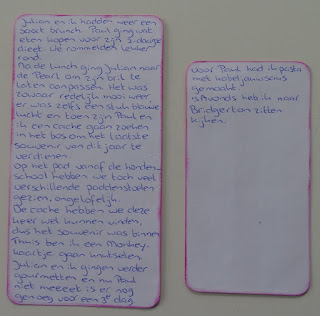 Julian en ik hadden weer een
soort brunch. Paul ging wat
eten kopen voor zijn 5-daagse
dieet. We rommelden lekker
rond.
Na de lunch ging Julian naar
de Pearl om zijn bril te
laten aanpassen. Het was
zowaar redelijk mooi weer
er was zelfs een stuk blauwe
lucht en toen zijn Paul en
ik een cache gaan zoeken
in het bos om het laatste
souvenir van dit jaar te
verdienen.
Op het pad vanaf de honden-
school hebben we toch veel
verschillende paddenstoelen
gezien, ongelofelijk.
De cache hebben we deze
keer wel kunnen vinden,
dus het souvenir was binnen.
Thuis ben ik een Monkey-
kaartje gaan knutselen.
Julian en ik gingen verder
gourmetten en nu Paul
niet meeeet is er nog
genoeg voor een 3e dag.
Voor Paul had ik pasta
met koolrabi
gemaakt.
's Avonds heb ik naar
Bridgerton zitten
kijken.